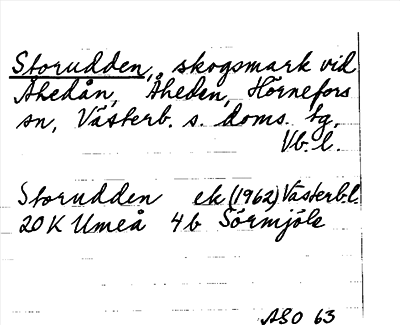 Storudden, skogsmark vid
Åhedån, Åheden, Hörnefors
sn, Västerb. s. doms. tg,
Vb. l.
Storudden ek (1962) Västerb.l.
20K Umeå 4b Sörmjöle
ASO 63